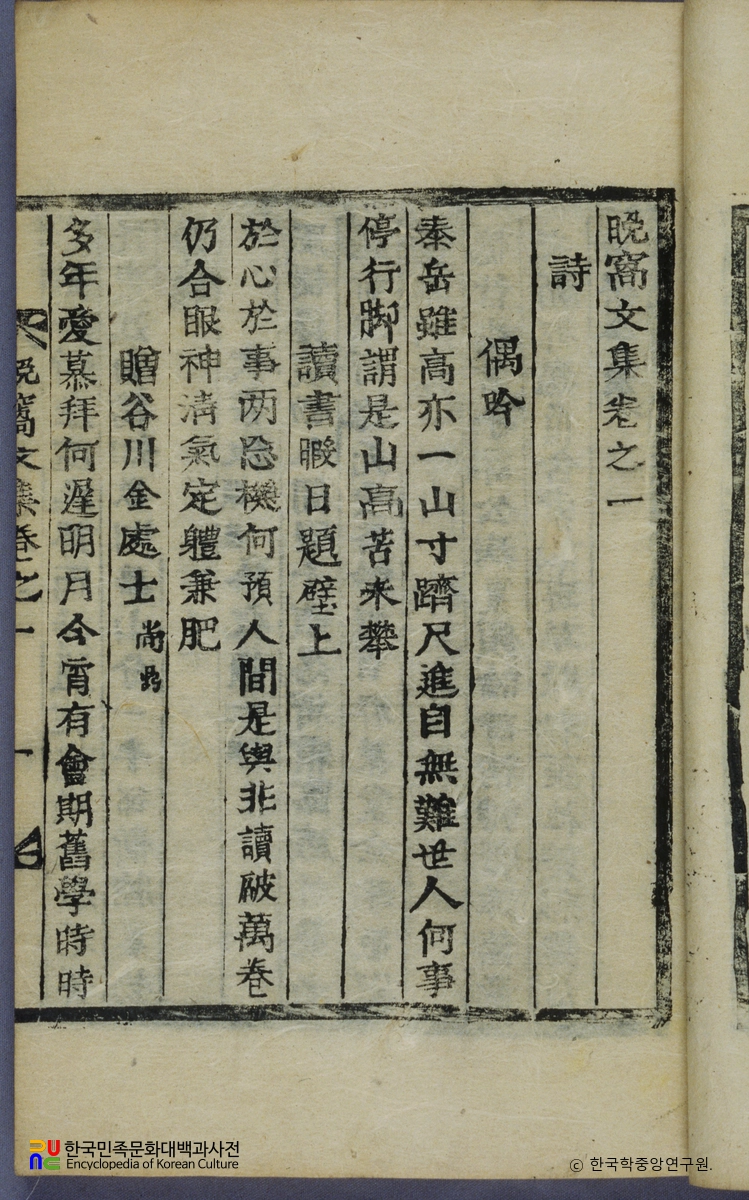 晚窩文集卷之一
詩
偶吟
泰岳雖高亦一山寸躋尺進自無難世人何事
停行脚謂是山高苦未攀
讀書暇日題壁上
於心於事两忘機何預人間是與非讀破萬卷
仍合眼神淸氣定體兼肥
贈谷川金處士 尙
多年愛慕拜何遲明月今宵有會期舊學時時
晚窩文集卷之一 一
한국민족문화대백과사전
Encyclopedia of Korean Culture
ⓒ 한국학중앙연구원.